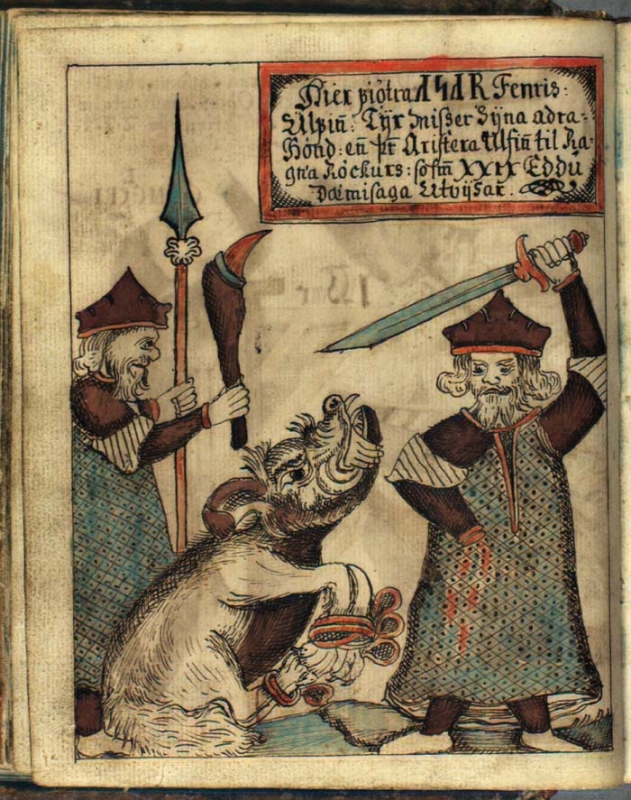 Hier piötra ASAR Fenris:
Ulfiñ: Tÿr Mißer Sÿna adra-
Hönd: eñ þr Aristera Ulfiñ til Ra-
gna Röckurs: sosm XXIX Eddu
Dæmisaga Utvÿsar.